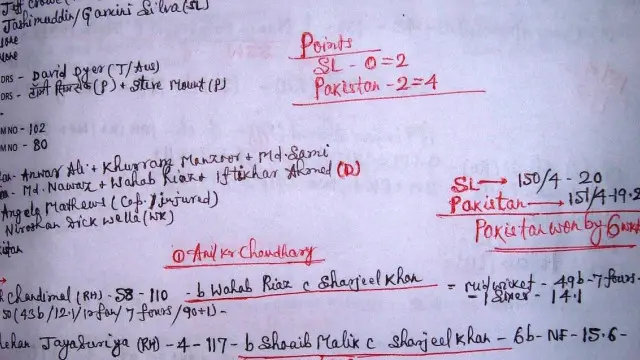 Jeff Crowe
Jashimuddin/Gamini Silva (SL)
None
None
Points
SL - 0 = 2
Pakistan - 2 = 4
ORS - David Dyer (T/Aus)
ORS - + Steve Mount (P)
MNO - 102
MNO - 80
Anwar Ali + Khurram Manzoor + Md. Sami
Md. Nawaz + Wahab Riaz + Iftikhar Ahmed (D)
Angelo Mathews (Cap./injured)
Niroshan Dickwella (WK)
SL → 150/4 - 20
Pakistan → 151/4 - 19.2
Pakistan won by 6 wkt
① Anil Kr Chaudhary
Chandimal (RH) - 58 - 110 - b Wahab Riaz c Sharjeel Khan = mid wicket - 49b - 7 fours -
50 (43b / 12.1 / / 7 fours / 90+1) - - 1 sixes - 14.1
Jayasuriya (RH) - 4 - 117 - b Shoaib Malik c Sharjeel Khan - 6b - NF - 15.6 -